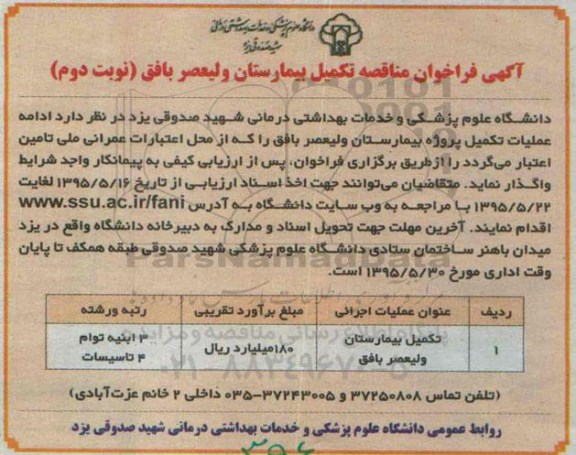 دانشگاه علوم پزشکی و خدمات بهداشتی درمانی
شهید صدوقی یزد
آگهی فراخوان مناقصه تکمیل بیمارستان ولیعصر بافق (نوبت دوم)
دانشگاه علوم پزشکی و خدمات بهداشتی درمانی شهید صدوقی یزد در نظر دارد ادامه
عملیات تکمیل پروژه بیمارستان ولیعصر بافق را که از محل اعتبارات عمرانی ملی تامین
اعتبار می‌گردد را از طریق برگزاری فراخوان، پس از ارزیابی کیفی به پیمانکار واجد شرایط
واگذار نماید. متقاضیان می‌توانند جهت اخذ اسناد ارزیابی از تاریخ ۱۳۹۵/۵/۱۶ لغایت
۱۳۹۵/۵/۲۲ با مراجعه به وب سایت دانشگاه به آدرس www.ssu.ac.ir/fani
اقدام نمایند. آخرین مهلت جهت تحویل اسناد و مدارک به دبیرخانه دانشگاه واقع در یزد
میدان باهنر ساختمان ستادی دانشگاه علوم پزشکی شهید صدوقی طبقه همکف تا پایان
وقت اداری مورخ ۱۳۹۵/۵/۳۰ است.
ردیف عنوان عملیات اجرائی مبلغ برآورد تقریبی رتبه و رشته
۱ تکمیل بیمارستان ولیعصر بافق ۱۸۰میلیارد ریال ۳ ابنیه توام ۴ تاسیسات
(تلفن تماس ۳۷۲۵۰۸۰۸ و ۳۷۲۴۳۰۰۵-۰۳۵ داخلی ۲ خانم عزت‌آبادی)
روابط عمومی دانشگاه علوم پزشکی و خدمات بهداشتی درمانی شهید صدوقی یزد